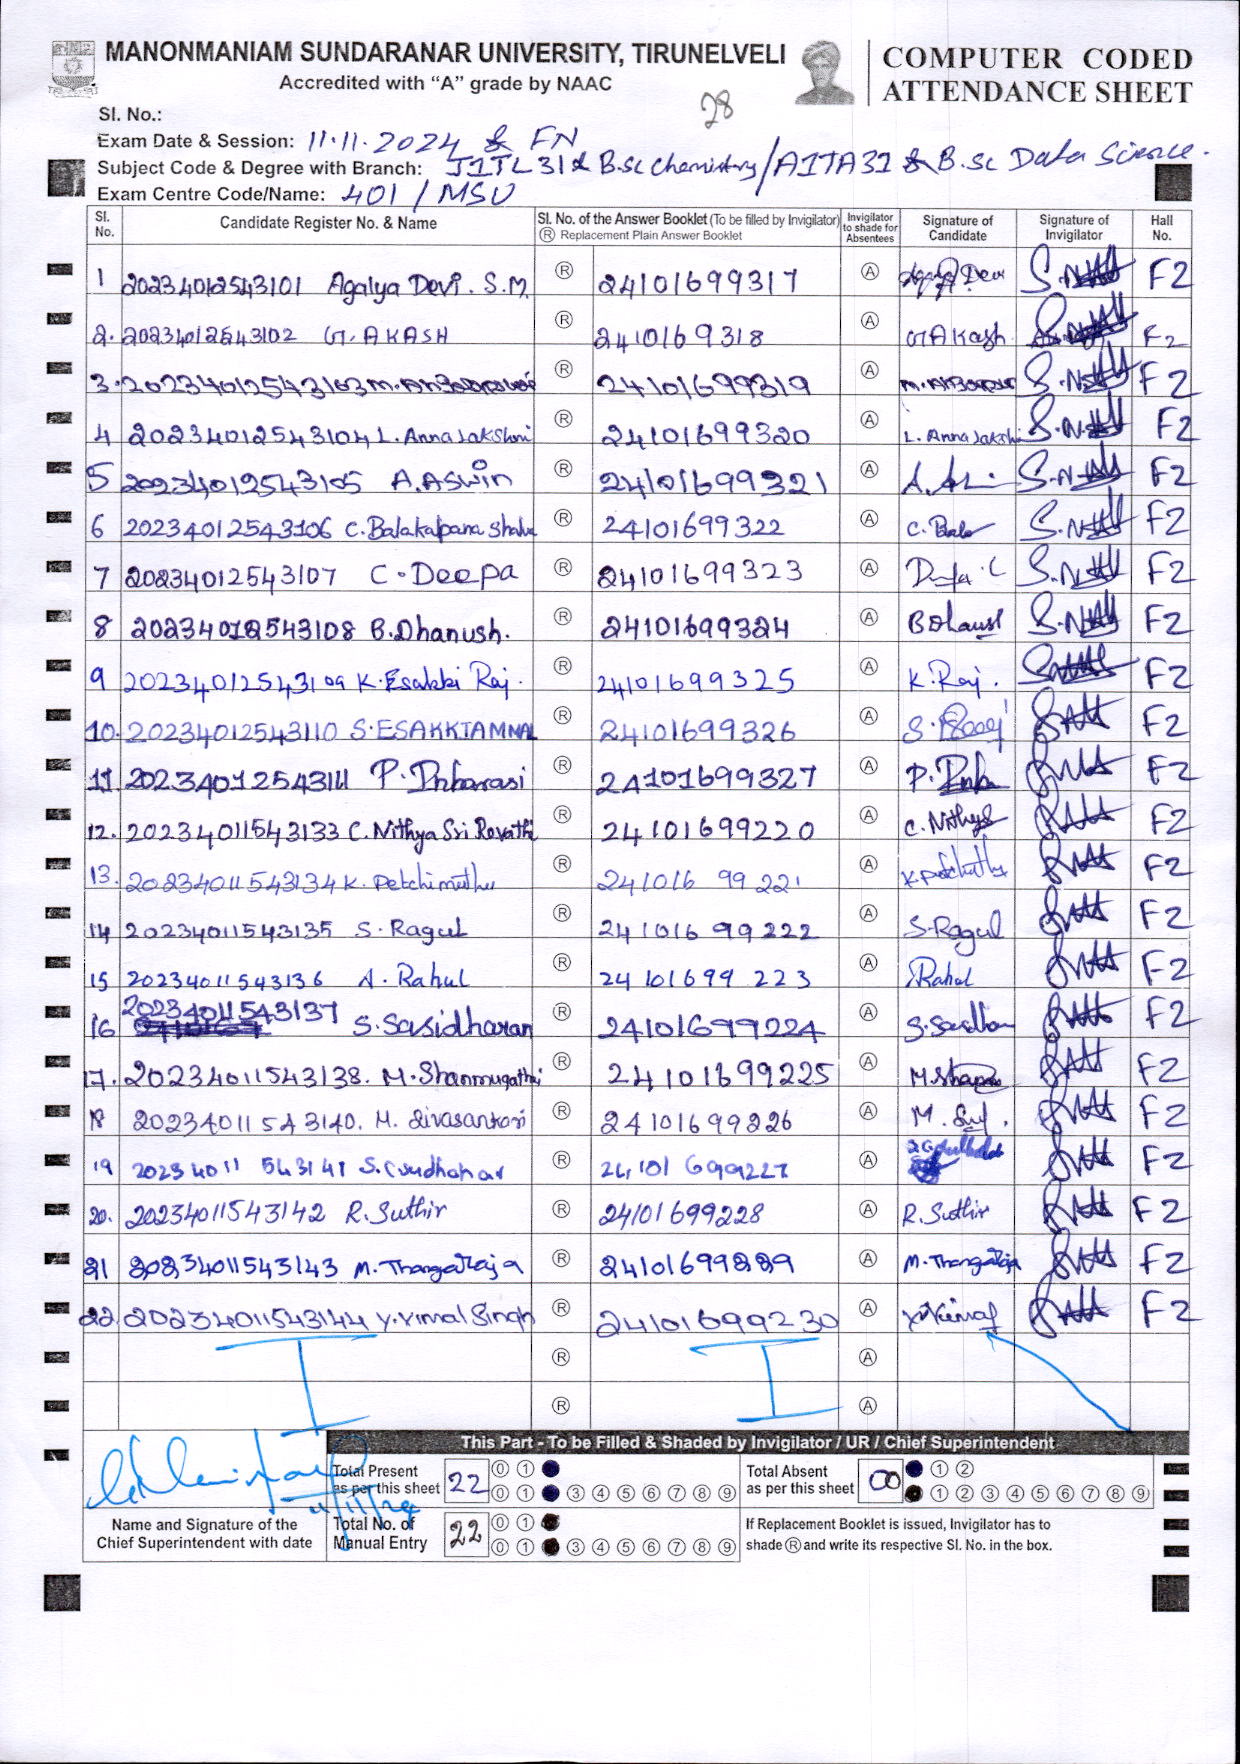 MANONMANIAM SUNDARANAR UNIVERSITY, TIRUNELVELI
Accredited with "A" grade by NAAC
COMPUTER CODED
ATTENDANCE SHEET
28
Sl. No.:
Exam Date & Session: 11.11.2024 & FN
Subject Code & Degree with Branch: JITL31 & B.sc Chemistry/AITA31 & B.sc Data Science.
Exam Centre Code/Name: 401 / MSU
Sl. No. Candidate Register No. & Name Sl. No. of the Answer Booklet (To be filled by Invigilator) Ⓡ Replacement Plain Answer Booklet Invigilator to shade for Absentees Signature of Candidate Signature of Invigilator Hall No.
1 20234012543101 Agalya Devi. S.M. Ⓡ 24101699317 Ⓐ F2
2. 20234012543102 G. AKASH Ⓡ 2410169318 Ⓐ G AKash F2
3. 20234012543103 M. Ⓡ 24101699319 Ⓐ F2
4 20234012543104 L. Annalakshmi Ⓡ 24101699320 Ⓐ L. Annalakshmi F2
5 20234012543105 A. Aswin Ⓡ 24101699321 Ⓐ F2
6 20234012543106 C. Balakalpana Ⓡ 24101699322 Ⓐ C. Bala F2
7 20234012543107 C. Deepa Ⓡ 24101699323 Ⓐ F2
8 20234012543108 B. Dhanush. Ⓡ 24101699324 Ⓐ F2
9 20234012543109 K. Esakki Raj. Ⓡ 24101699325 Ⓐ K. Raj. F2
10. 20234012543110 S. ESAKKIAMMAL Ⓡ 24101699326 Ⓐ F2
11 20234012543111 P. Inbarasi Ⓡ 24101699327 Ⓐ P. Inba F2
12. 20234011543133 C. Nithya Sri Revathi Ⓡ 24101699220 Ⓐ C. Nithya F2
13. 20234011543134 K. Petchimuthu Ⓡ 24101699221 Ⓐ F2
14 20234011543135 S. Ragul Ⓡ 24101699222 Ⓐ S. Ragul F2
15 20234011543136 A. Rahul Ⓡ 24101699223 Ⓐ Rahul F2
16 20234011543137 S. Sasidharan Ⓡ 24101699224 Ⓐ F2
17. 20234011543138. M. Shanmugathai Ⓡ 24101699225 Ⓐ F2
18 20234011543140. M. Sivasankari Ⓡ 24101699226 Ⓐ F2
19 20234011543141 S. Ⓡ 24101699227 Ⓐ F2
20. 20234011543142 R. Suthir Ⓡ 24101699228 Ⓐ R. Suthir F2
21 20234011543143 M. Thangaraja Ⓡ 24101699229 Ⓐ M. Thangaraja F2
22. 20234011543144 Y. Vimal Singh Ⓡ 24101699230 Ⓐ F2
Ⓡ Ⓐ
Ⓡ Ⓐ
This Part - To be Filled & Shaded by Invigilator / UR / Chief Superintendent
Total Present as per this sheet 22 ⓪ ①
⓪ ① ③ ④ ⑤ ⑥ ⑦ ⑧ ⑨
Total Absent as per this sheet 00 ① ②
① ② ③ ④ ⑤ ⑥ ⑦ ⑧ ⑨
11/11/24
Name and Signature of the
Chief Superintendent with date
Total No. of Manual Entry 22 ⓪ ①
⓪ ① ③ ④ ⑤ ⑥ ⑦ ⑧ ⑨
If Replacement Booklet is issued, Invigilator has to
shade Ⓡ and write its respective Sl. No. in the box.